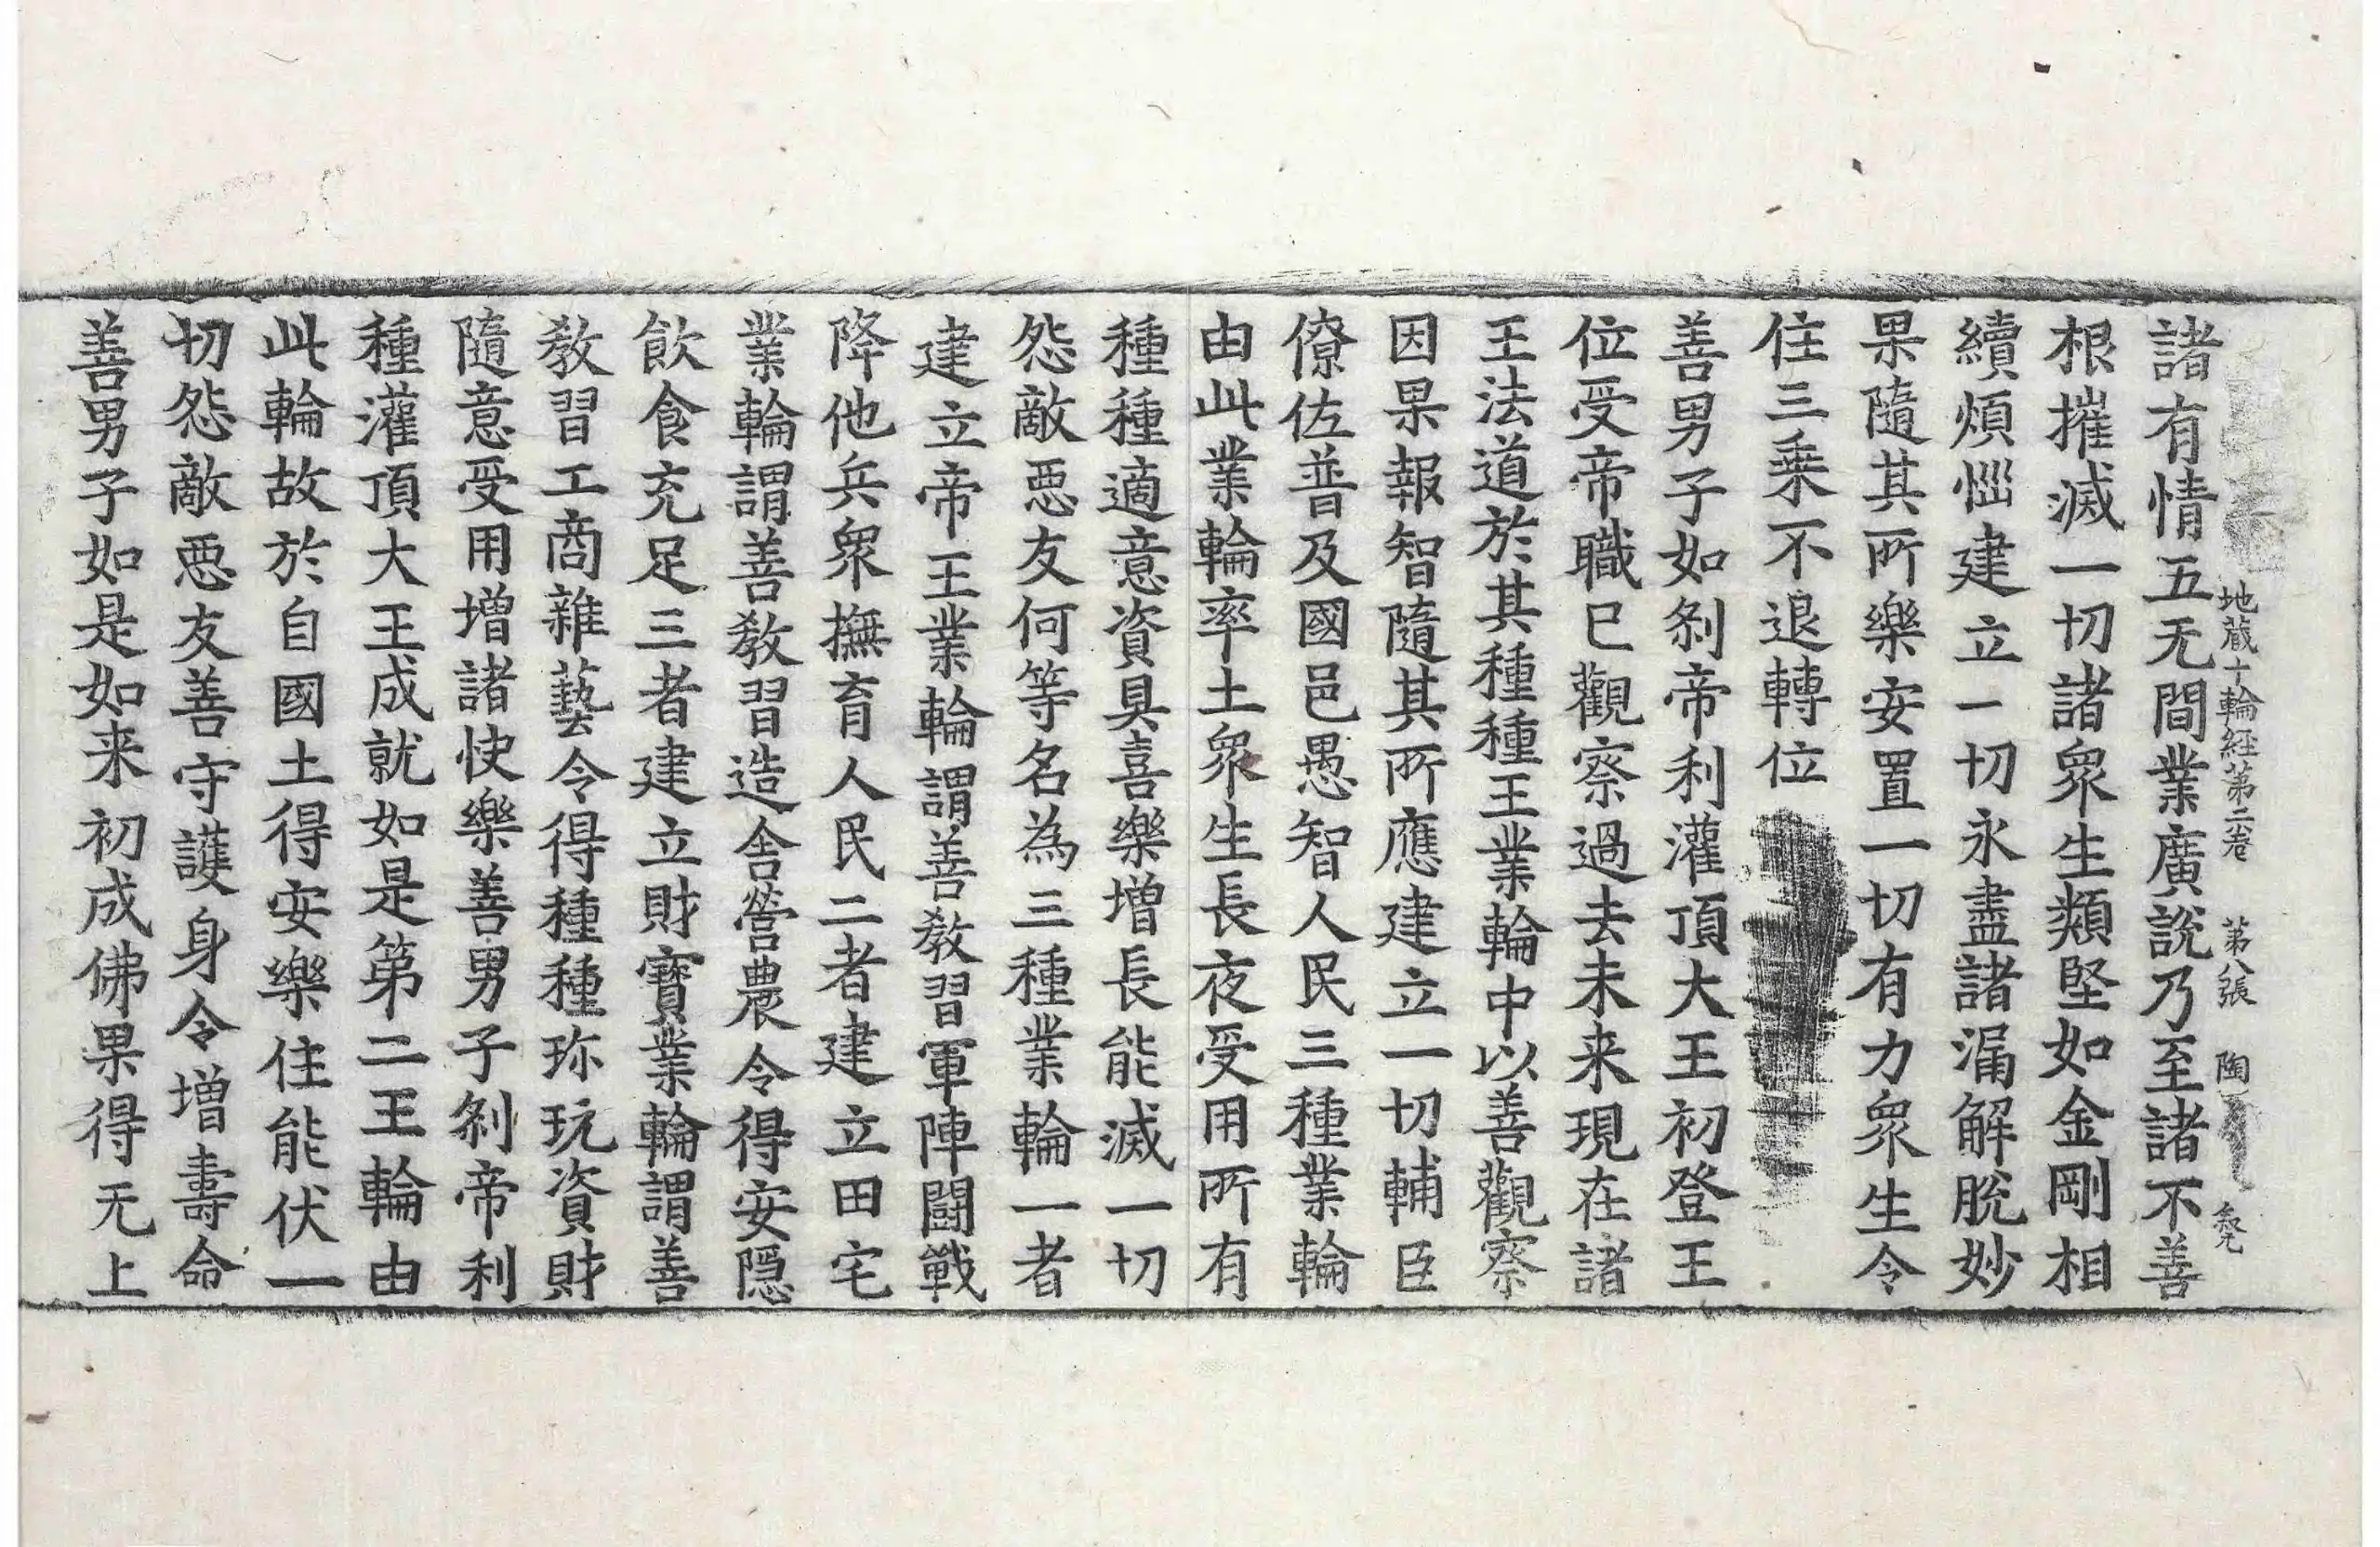 地蔵十輪経第二卷 第八張 陶
諸有情五无間業廣說乃至諸不善
根摧滅一切諸衆生類堅如金剛相
續煩惱建立一切永盡諸漏解脫妙
果隨其所樂安置一切有力衆生令
住三乗不退轉位
善男子如刹帝利灌頂大王初登王
位受帝職已觀察過去未来現在諸
王法道於其種種王業輪中以善觀察
因果報智隨其所應建立一切輔臣
僚佐普及國邑愚智人民三種業輪
由此業輪率土衆生長夜受用所有
種種適意資具喜樂增長能滅一切
怨敵惡友何等名為三種業輪一者
建立帝王業輪謂善教習軍陣鬪戰
降他兵衆撫育人民二者建立田宅
業輪謂善教習造舍營農令得安隱
飲食充足三者建立財寶業輪謂善
教習工商雜藝令得種種珎玩資財
隨意受用增諸快樂善男子刹帝利
種灌頂大王成就如是第二王輪由
此輪故於自國土得安樂住能伏一
切怨敵惡友善守護身令增壽命
善男子如是如来初成佛果得无上